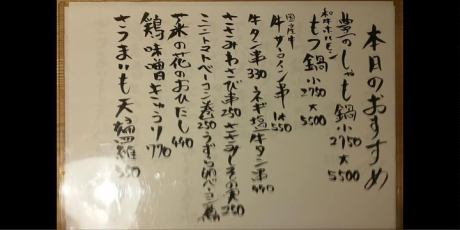 本日のおすすめ
豊のしゃも鍋 小2750 大5500
和牛ホルモン
もつ鍋 小2750 大5500
国産牛
牛サーロイン串 1本550
牛タン串330 ネギ塩牛タン串440
ささみわさび串250 ささみしその実250
ミニトマトベーコン巻250 うずらベーコン巻
菜の花のおひたし440
鶏味噌きゅうり770
さつまいも天婦羅550